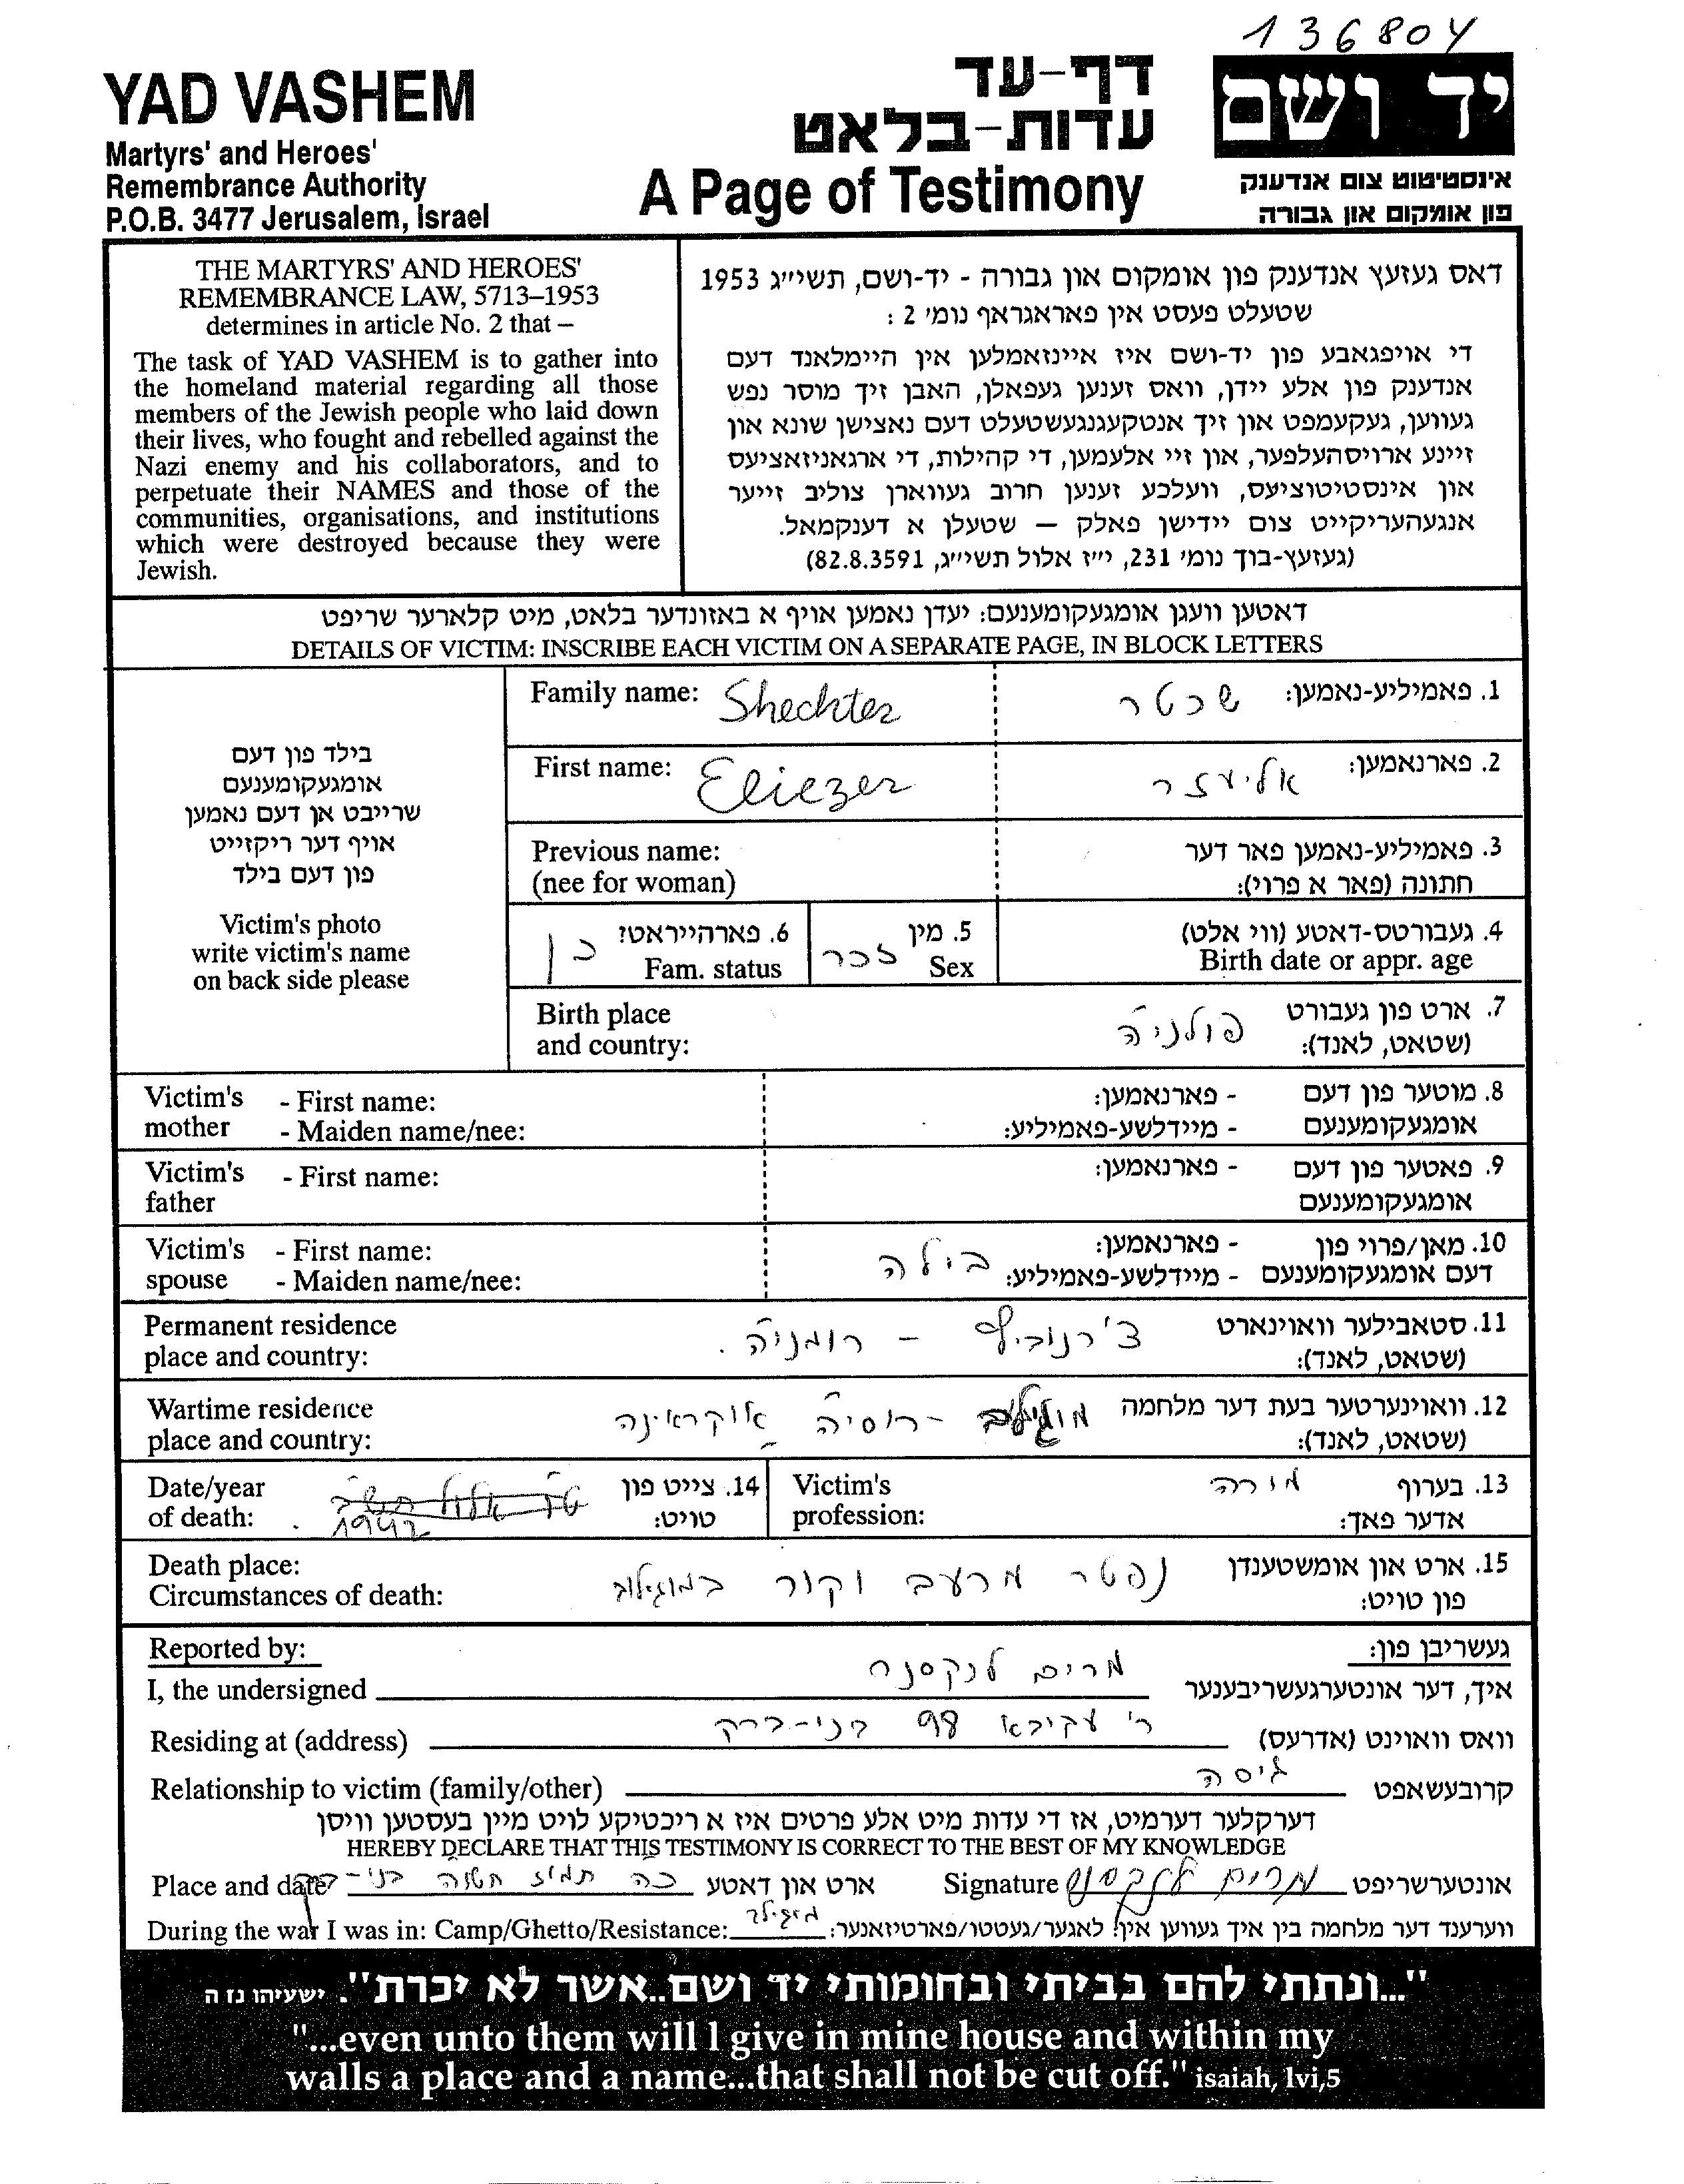 136804
YAD VASHEM
Martyrs' and Heroes'
Remembrance Authority
P.O.B. 3477 Jerusalem, Israel
דף-עד
עדות-בלאט
A Page of Testimony
יד ושם
אינסטיטוט צום אנדענק
פון אומקום און גבורה
THE MARTYRS' AND HEROES'
REMEMBRANCE LAW, 5713–1953
determines in article No. 2 that –
The task of YAD VASHEM is to gather into
the homeland material regarding all those
members of the Jewish people who laid down
their lives, who fought and rebelled against the
Nazi enemy and his collaborators, and to
perpetuate their NAMES and those of the
communities, organisations, and institutions
which were destroyed because they were
Jewish.
דאס געזעץ אנדענק פון אומקום און גבורה - יד-ושם, תשי״ג 1953
שטעלט פעסט אין פאראגראף נומ׳ 2 :
די אויפגאבע פון יד-ושם איז איינזאמלען אין היימלאנד דעם
אנדענק פון אלע יידן, וואס זענען געפאלן, האבן זיך מוסר נפש
געווען, געקעמפט און זיך אנטקעגנגעשטעלט דעם נאצישן שונא און
זיינע ארויסהעלפער, און זיי אלעמען, די קהילות, די ארגאניזאציעס
און אינסטיטוציעס, וועלכע זענען חרוב געווארן צוליב זייער
אנגעהעריקייט צום יידישן פאלק — שטעלן א דענקמאל.
(געזעץ-בוך נומ׳ 231, י״ז אלול תשי״ג, 82.8.3591)
דאטען וועגן אומגעקומענעם: יעדן נאמען אויף א באזונדער בלאט, מיט קלארער שריפט
DETAILS OF VICTIM: INSCRIBE EACH VICTIM ON A SEPARATE PAGE, IN BLOCK LETTERS
בילד פון דעם
אומגעקומענעם
שרייבט אן דעם נאמען
אויף דער ריקזייט
פון דעם בילד
Victim's photo
write victim's name
on back side please
Family name: Shechter שכטר 1. פאמיליע-נאמען:
First name: Eliezer אליעזר 2. פארנאמען:
Previous name: 3. פאמיליע-נאמען פאר דער
(nee for woman) חתונה (פאר א פרוי):
כן 6. פארהייראט? זכר 5. מין 4. געבורטס-דאטע (ווי אלט)
Fam. status Sex Birth date or appr. age
Birth place פולניה 7. ארט פון געבורט
and country: (שטאט, לאנד):
Victim's - First name: - פארנאמען: 8. מוטער פון דעם
mother - Maiden name/nee: - מיידלשע-פאמיליע: אומגעקומענעם
Victim's - First name: - פארנאמען: 9. פאטער פון דעם
father אומגעקומענעם
Victim's - First name: - פארנאמען: 10. מאן/פרוי פון
spouse - Maiden name/nee: בילה - מיידלשע-פאמיליע: דעם אומגעקומענעם
Permanent residence צ'רנוביץ – רומניה. 11. סטאבילער וואוינארט
place and country: (שטאט, לאנד):
Wartime residence מוגילב - רוסיה אוקראינה 12. וואוינערטער בעת דער מלחמה
place and country: (שטאט, לאנד):
Date/year ט"ו אלול תש"ב 14. צייט פון Victim's מורה 13. בערוף
of death: 1942 טויט: profession: אדער פאך:
Death place: נפטר מרעב וקור במוגילוב 15. ארט און אומשטענדן
Circumstances of death: פון טויט:
Reported by: געשריבן פון:
I, the undersigned מרים לנקסנר איך, דער אונטערגעשריבענער
Residing at (address) ר' עקיבא 98 בני-ברק וואס וואוינט (אדרעס)
Relationship to victim (family/other) גיסה קרובעשאפט
דערקלער דערמיט, אז די עדות מיט אלע פרטים איז א ריכטיקע לויט מיין בעסטען וויסן
HEREBY DECLARE THAT THIS TESTIMONY IS CORRECT TO THE BEST OF MY KNOWLEDGE
Place and date כה תמוז בני-ברק ארט און דאטע Signature מרים לנקסנר אונטערשריפט
During the war I was in: Camp/Ghetto/Resistance: מוגילב ווערענד דער מלחמה בין איך געווען אין: לאגער/געטטו/פארטיזאנער:
"...ונתתי להם בביתי ובחומותי יד ושם..אשר לא יכרת". ישעיהו נז ה
"...even unto them will I give in mine house and within my
walls a place and a name...that shall not be cut off." isaiah, lvi,5